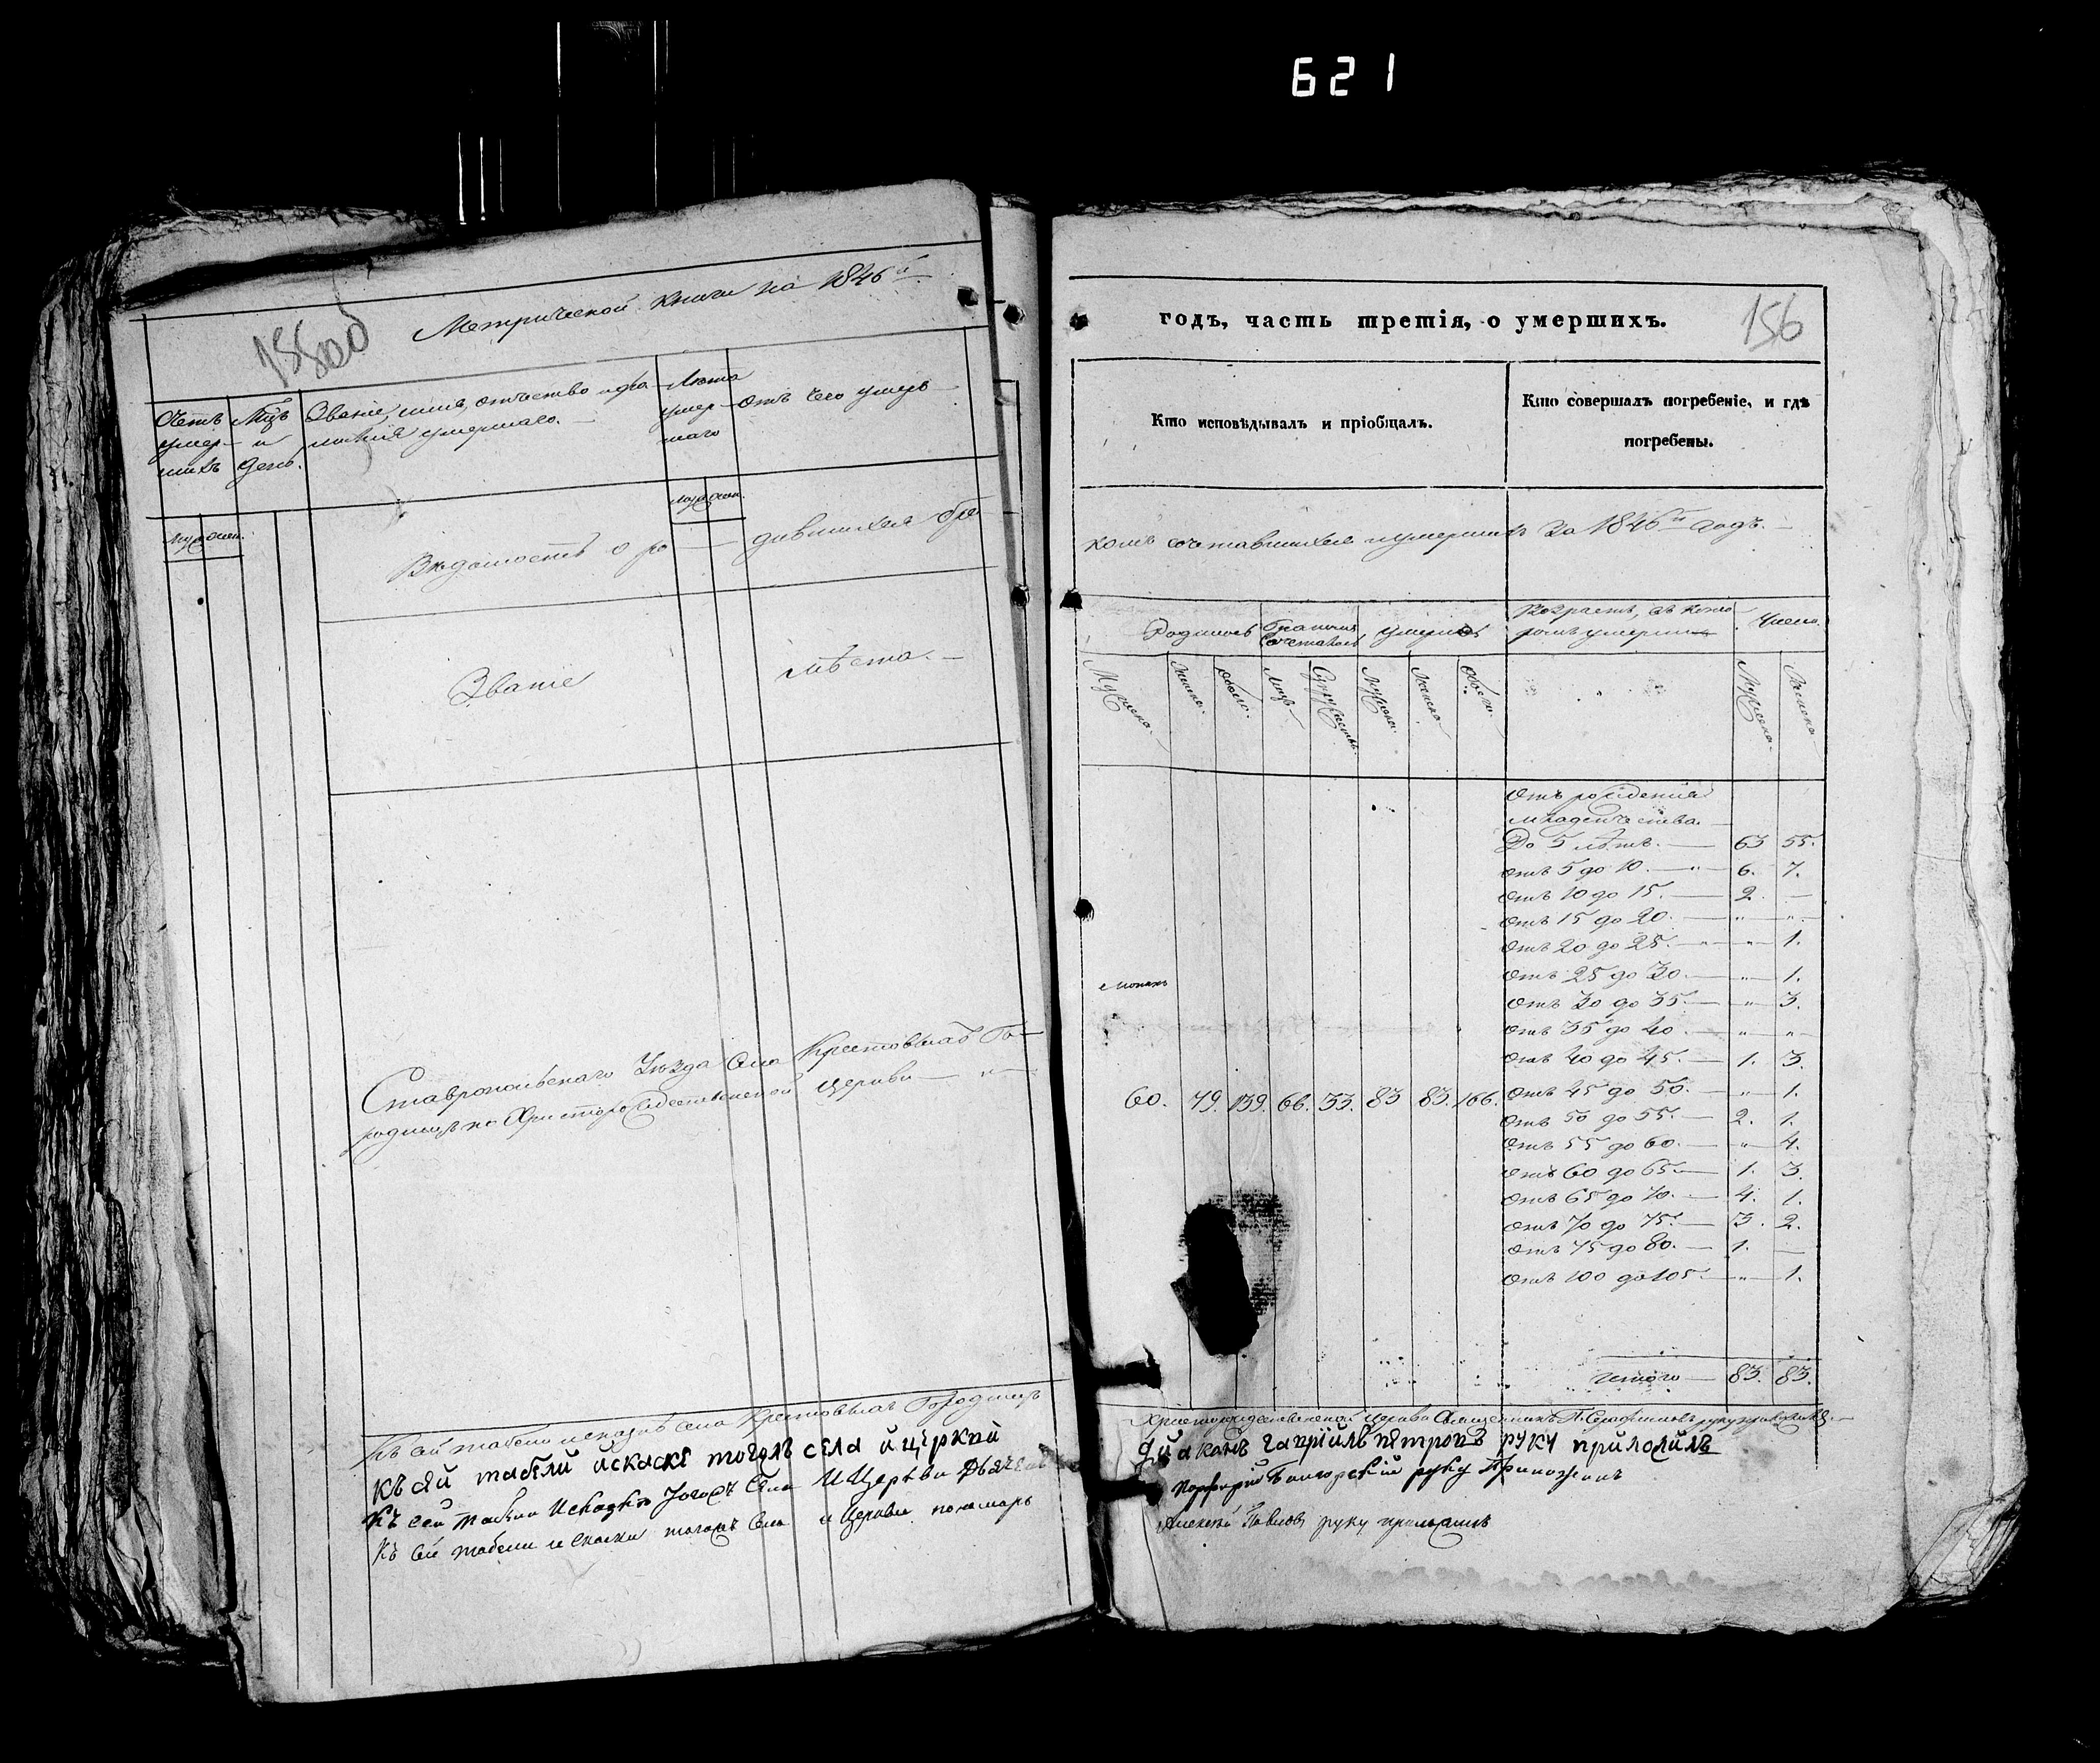 621
Метрической книги на 1846й
155 об
Счетъ умер- шихъ
Мцъ и день.
Званіе, имя, отчество и фа- милія умершаго.
Лѣта умер- шаго
отъ чего умеръ
муж. жен.
муж. жен.
Вѣдомость о ро- дившихся бра-
Званіе
мѣста.
Ставропольскаго Уѣзда Села Крестовыхъ Го-
родищъ по Христорождественской церкви
Къ сей табели и сказкѣ села Крестовыхъ Городищъ
къ сей табели искаске тогожъ села и церкви
Къ сей табели и сказкѣ тогожъ Села и Церкви Дьячекъ
Къ сей табели и скаски тогожъ Села и Церкви пономарь
годъ, часть третія, о умершихъ.
156
Кто исповѣдывалъ и пріобщалъ.
Кто совершалъ погребеніе, и гдѣ
погребены.
комъ сочетавшихся и умершихъ за 1846й годъ.
Родилось
Бракомъ Сочеталось
умерло
Возрастъ, въ кото- ромъ умерли
Число.
Мужеска.
Женска.
Обоего.
Лицъ
Супружествъ.
Мужеска.
Женска
Обоего.
Мужеска.
Женска
Отъ рожденія
младенчества.
До 5 лѣтъ. 63 55.
Отъ 5 до 10. 6. 7.
Отъ 10 до 15. 2. —
Отъ 15 до 20. " "
Отъ 20 до 25. " 1.
Отъ 25 до 30. " 1.
Отъ 30 до 35. " 3.
Отъ 35 до 40. " "
Отъ 40 до 45. 1. 3.
60. 79. 139. 66. 33. 83 83. 166.
Отъ 45 до 50. " 1.
Отъ 50 до 55. 2. 1.
Отъ 55 до 60. " 4.
Отъ 60 до 65. 1. 3.
Отъ 65 до 70. 4. 1.
Отъ 70 до 75. 3. 2.
Отъ 75 до 80. 1. —
Отъ 100 до 105. " 1.
Итого 83. 83.
Христорождественской церкви Священникъ П. Серафимовъ руку приложилъ
Дйаконъ Гаврійлъ Петровъ руку приложилъ
Порфирій руку Приложилъ
Алексѣй Павловъ руку приложилъ